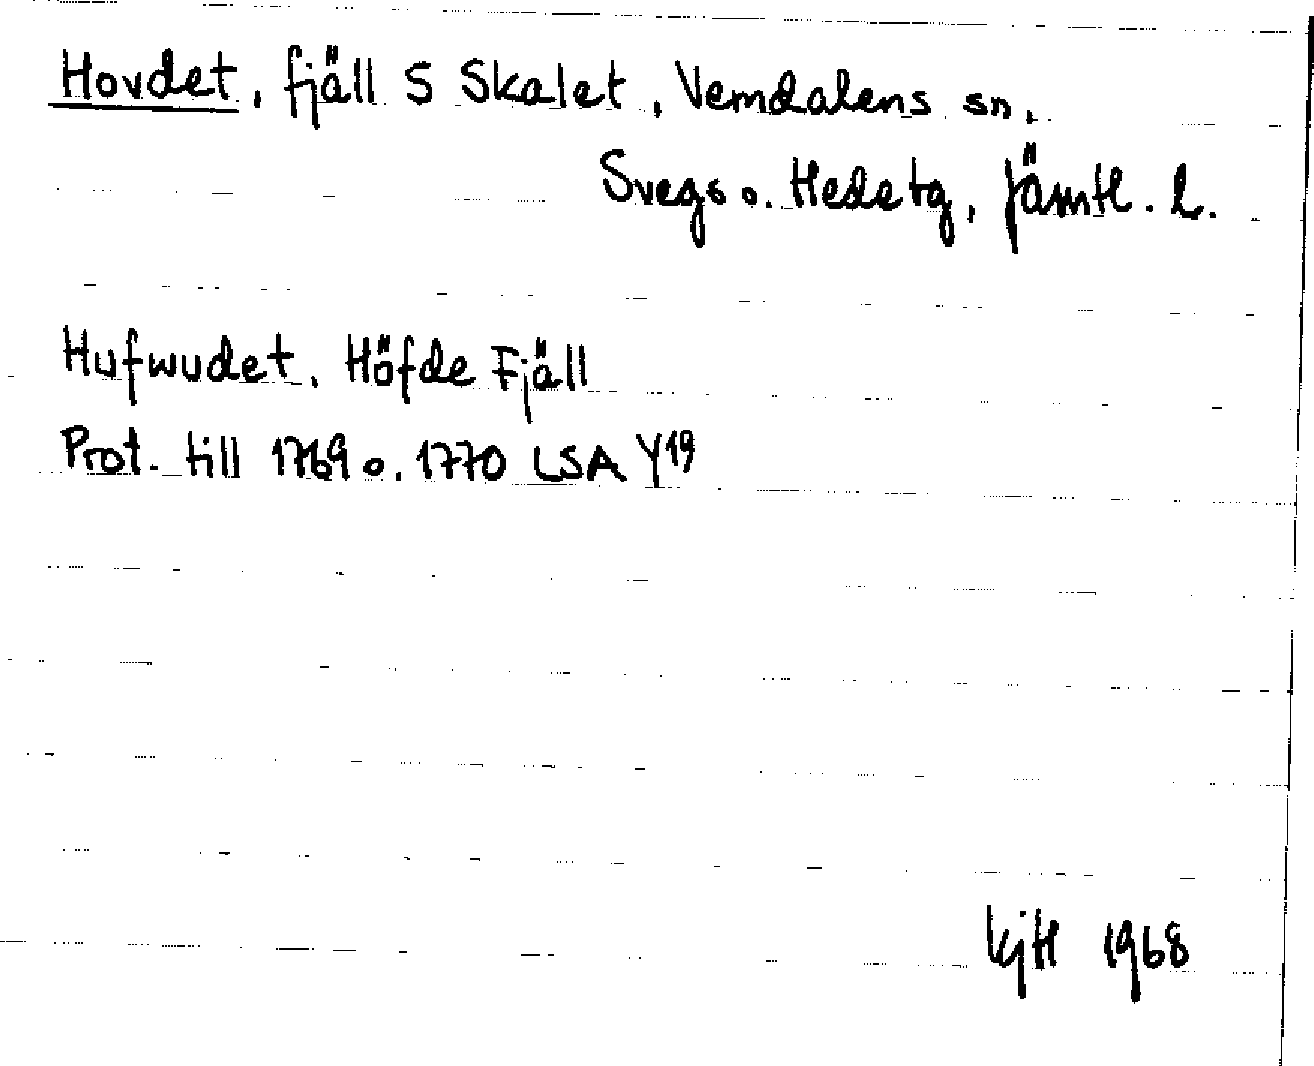 Hovdet, fjäll S Skalet, Vemdalens sn.
Svegs o. Hedetg, Jämtl. l.
Hufwudet. Höfde Fjäll
Prot. till 1769 o. 1770 LSA Y19
KjH 1968